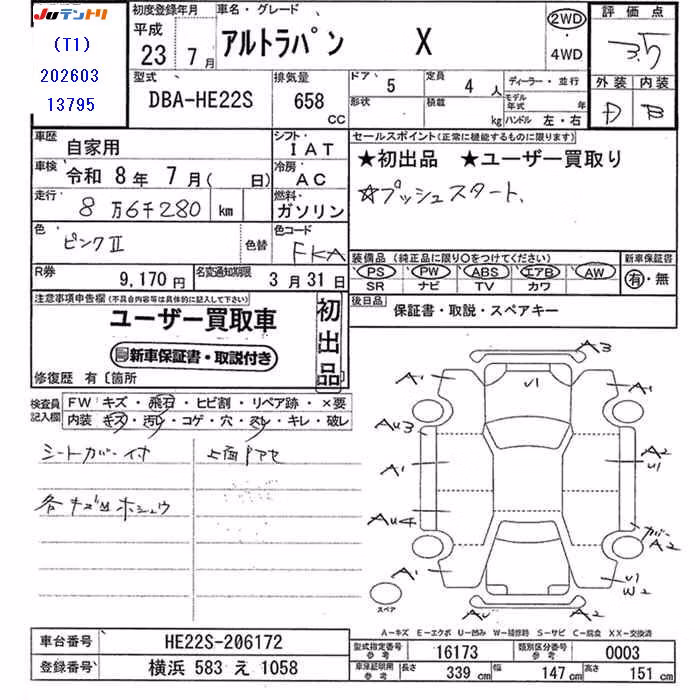 JUテントリ
(T1)
202603
13795
初度登録年月
平成
23 7月
車名・グレード
アルトラパン X
2WD
・
4WD
評価点
3.5
外装 内装
D B
型式
DBA-HE22S
排気量
658
CC
ドア・
5
定員
4 人
形状
積載
kg
ディーラー・並行
モデル年式 年
ハンドル 左・右
車歴
自家用
シフト・
I A T
車検・
令和 8年 7月( 日)
冷房・
A C
走行・
8万6千280 km
燃料・
ガソリン
色
ピンクII
色替
色コード
FKA
R券
9,170 円
名変通知期限
3月31日
セールスポイント(正常に機能するものに限ります)
★初出品 ★ユーザー買取り
☆プッシュスタート、
装備品(純正品に限り○をつけてください)
PS PW ABS エアB AW
SR ナビ TV カワ
新車保証書
有・無
後日品
保証書・取説・スペアキー
注意事項申告欄(不具合内容等は具体的に記入して下さい)
ユーザー買取車
新車保証書・取説付き
初出品
修復歴 有〔箇所
検査員記入欄
FW キズ・飛石・ヒビ割・リペア跡・×要
内装 キズ・汚レ・コゲ・穴・スレ・キレ・破レ
シートカバー付
上面Pアセ
各キズ凹ホシュウ
A3
A1
U1
A1
AU3
A2
U1
A1
AU4
カバー
A2
A1
U1
W2
スペア
AU
A2
A-キズ E-エクボ U-凹み W-補修跡 S-サビ C-腐食 XX-交換済
車台番号
HE22S-206172
登録番号
横浜 583 え 1058
型式指定番号参考
16173
類別区分番号参考
0003
車庫証明用参考
長さ 339 cm
幅 147 cm
高さ 151 cm